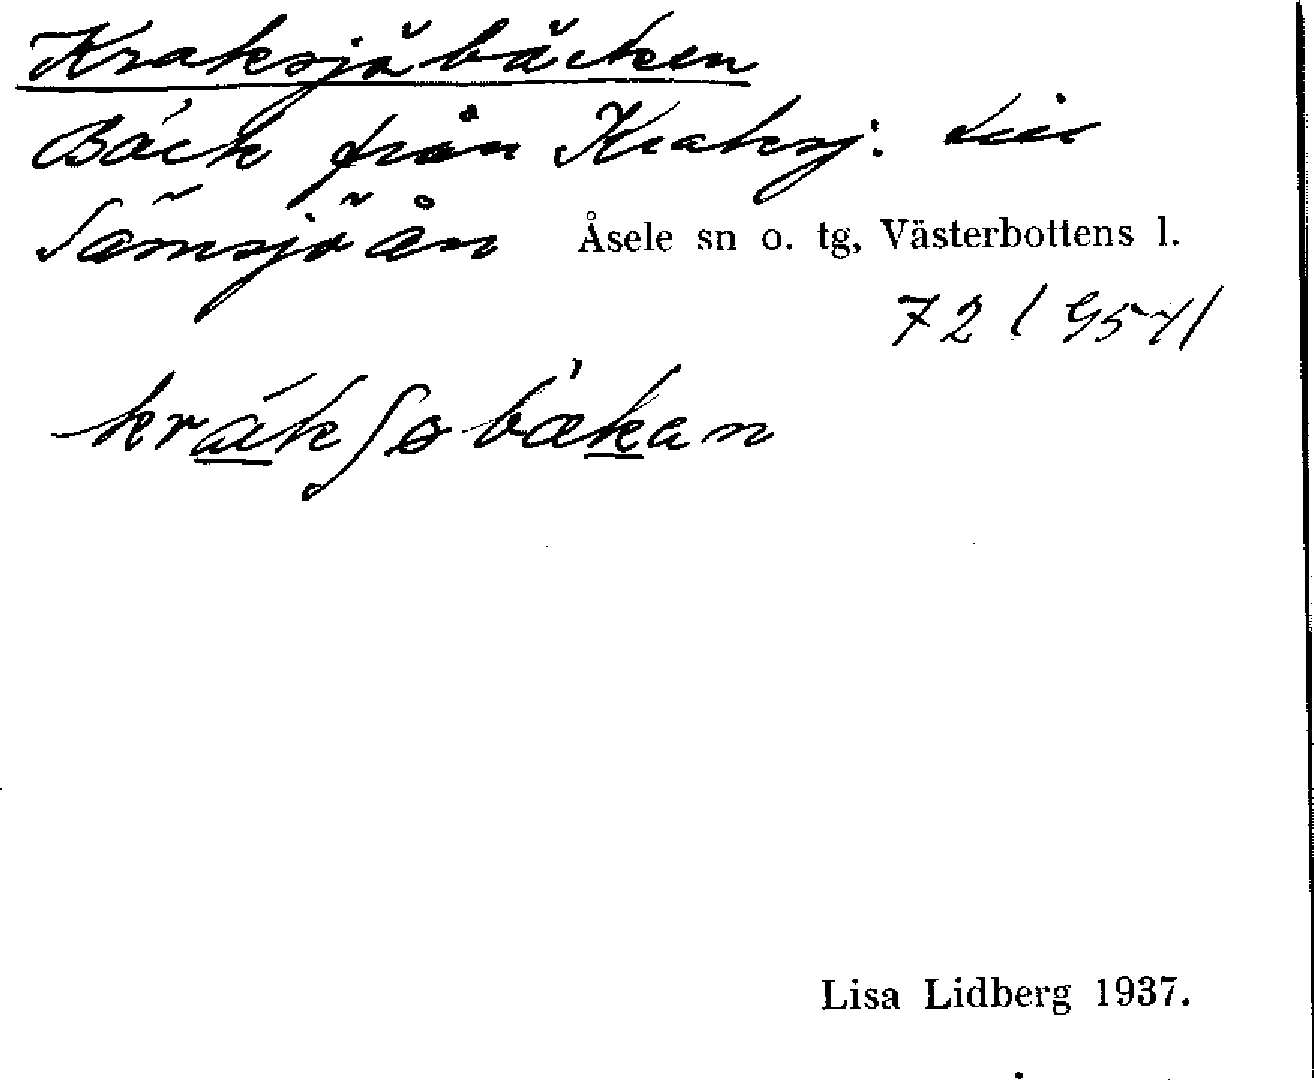 Kraksjöbäcken
Bäck från Kraksj. till
Sämsjöån Åsele sn o. tg, Västerbottens l.
72 /
krákʃøbækan
Lisa Lidberg 1937.